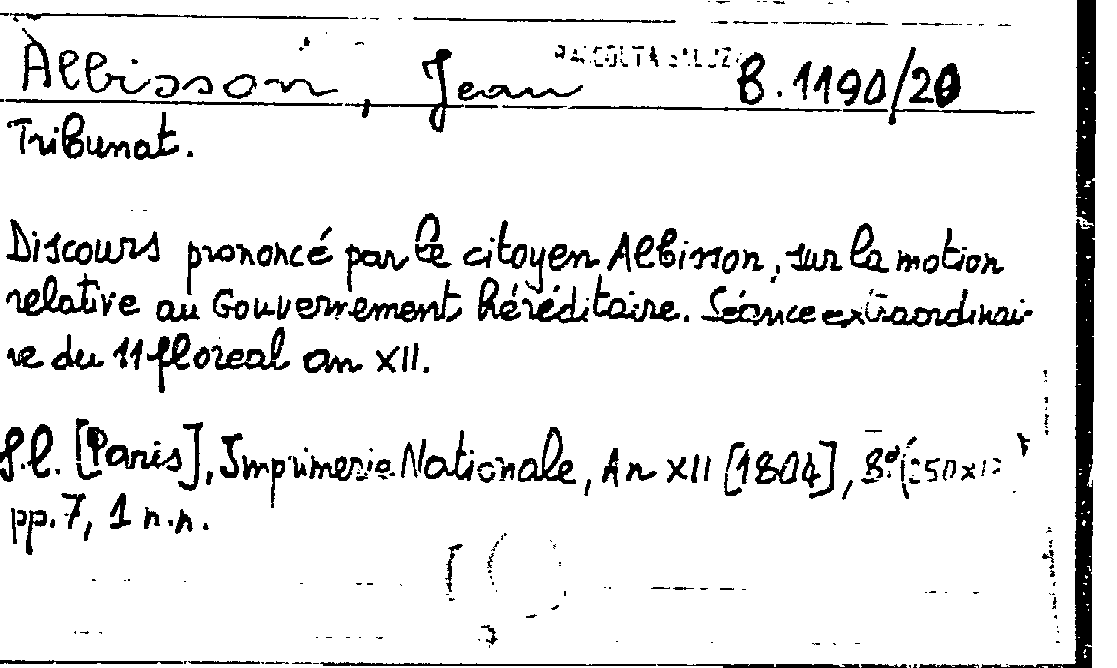 Albisson, Jean RACCOLTA B.1190/20
Tribunat.
Discours prononcé par le citoyen Albisson, sur la motion
relative au Gouvernement héréditaire. Séance extraordinai-
re du 11 floreal an XII.
S.l. [Paris], Imprimerie Nationale, An XII [1804], 8º (250x
pp. 7, 1 n.n.